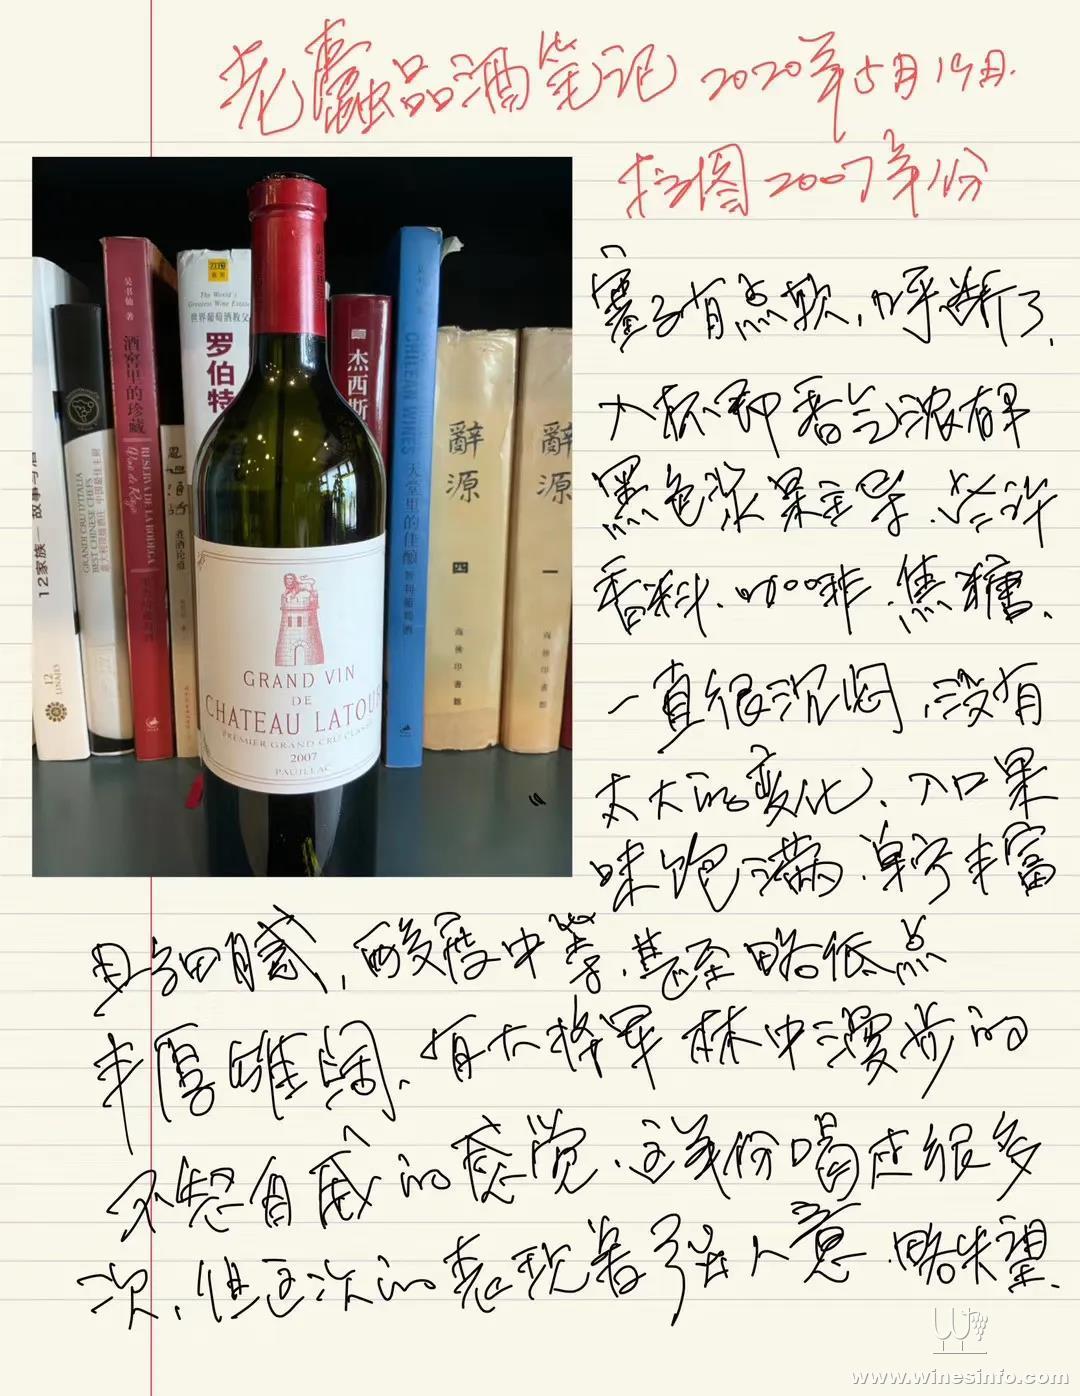 老蠹品酒笔记 2020年5月19日.
拉图2007年份
塞子有点软，呼断了.
入杯即香气浓郁
黑色浆果主导.些许
香料.咖啡.焦糖.
一直很沉闷.没有
太大的变化、入口果
味饱满.单宁丰富
且细腻，酸度中等.甚至略低点
丰厚雄阔、有大将军林中漫步的
不怒自威的感觉.这年份喝过很多
次、但这次的表现差强人意.略失望.
吴书仙 著
酒窖里的珍藏
RESERVA DE LA BODEGA
12家族 故事与酒
12
LINAJES
GRANDI CRU D'ITALIA
BEST CHINESE CHEFS
The World's
Greatest Wine Estates
世界葡萄酒教父
罗伯特
杰西斯
CHILEAN WINES
天堂里的佳酿
智利葡萄酒
辭源
四
商務印書館
辭源
一
商務印書館
GRAND VIN
DE
CHATEAU LATOUR
PREMIER GRAND CRU CLASSÉ
2007
PAUILLAC
www.winesinfo.com